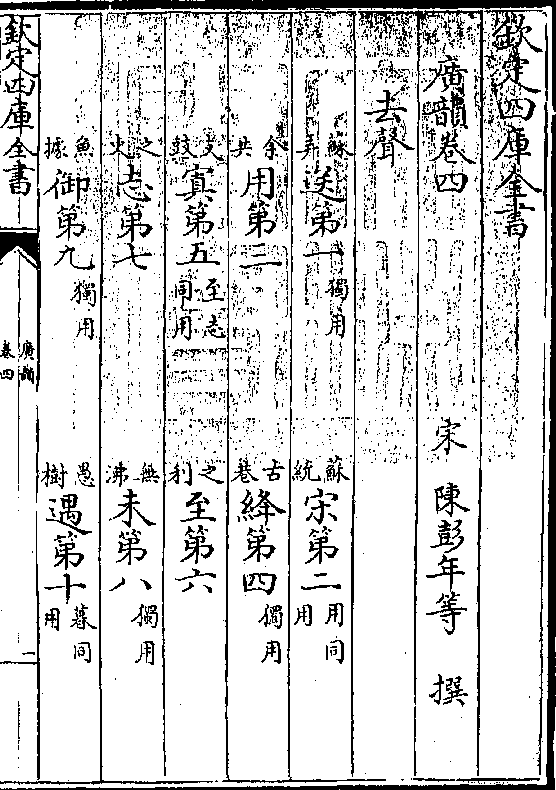 欽定四庫全書
廣韻卷四
宋 陳彭年等 撰
去聲
蘇弄送第一獨用 蘇統宋第二用同用
余共用第三 古巷絳第四獨用
支豉寘第五至志同用 之利至第六
之火志第七 無沸未第八獨用
魚據御第九獨用 愚樹遇第十暮同用
欽定四庫全書
廣韻
卷四
一